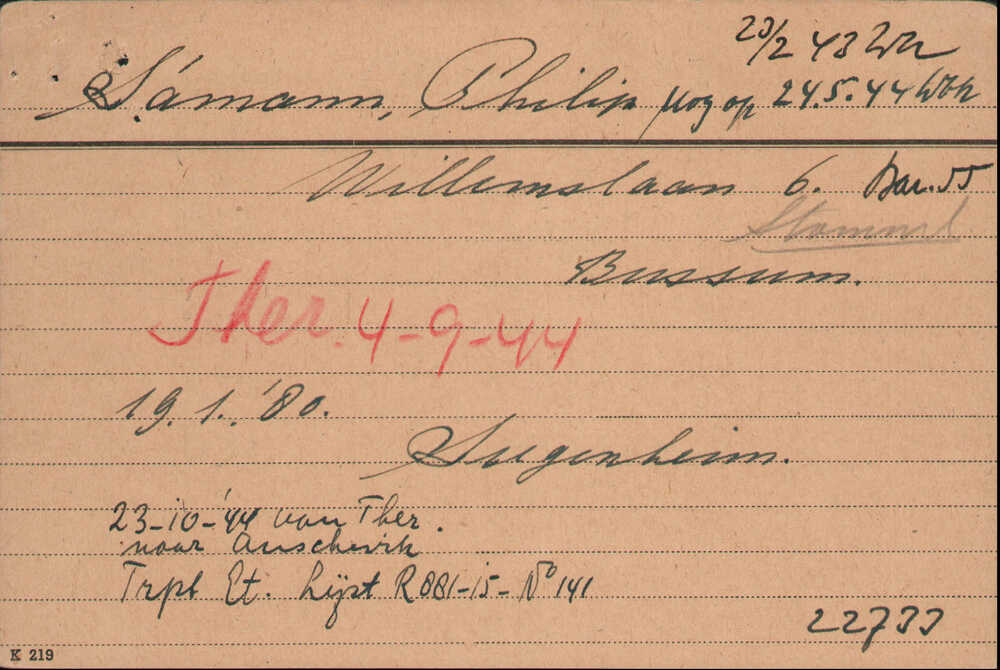 23/2 43 Wk
Sámann, Philip
nog op 24.5.44 Wbk
Willemslaan 6. Bar. 55
Stammel
Bussum.
Ther. 4-9-44
19.1.'80.
Sugenheim.
23-10-'44 van Ther.
naar Auschwitz
Trpt Et. Lijst R 881-15-No 141
22733
K 219